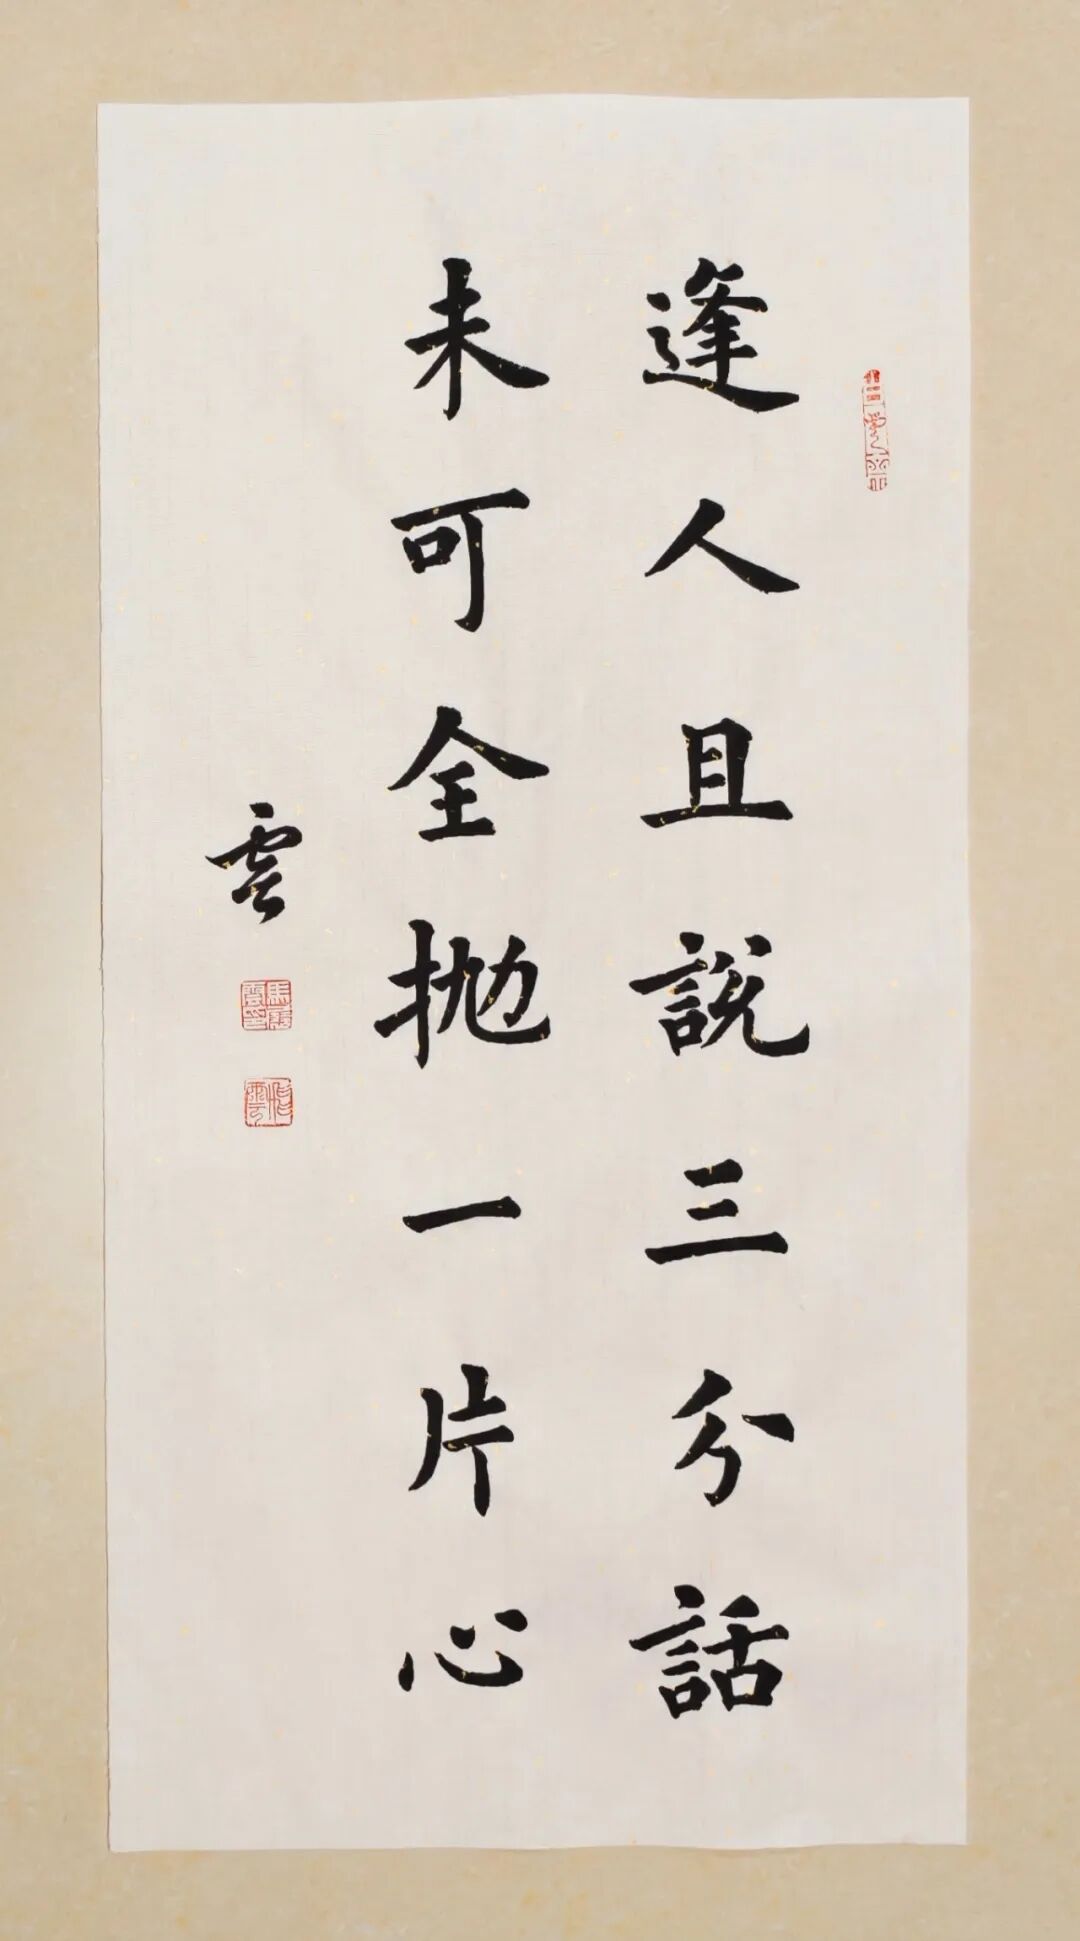 逢人且說三分話
未可全抛一片心
雲